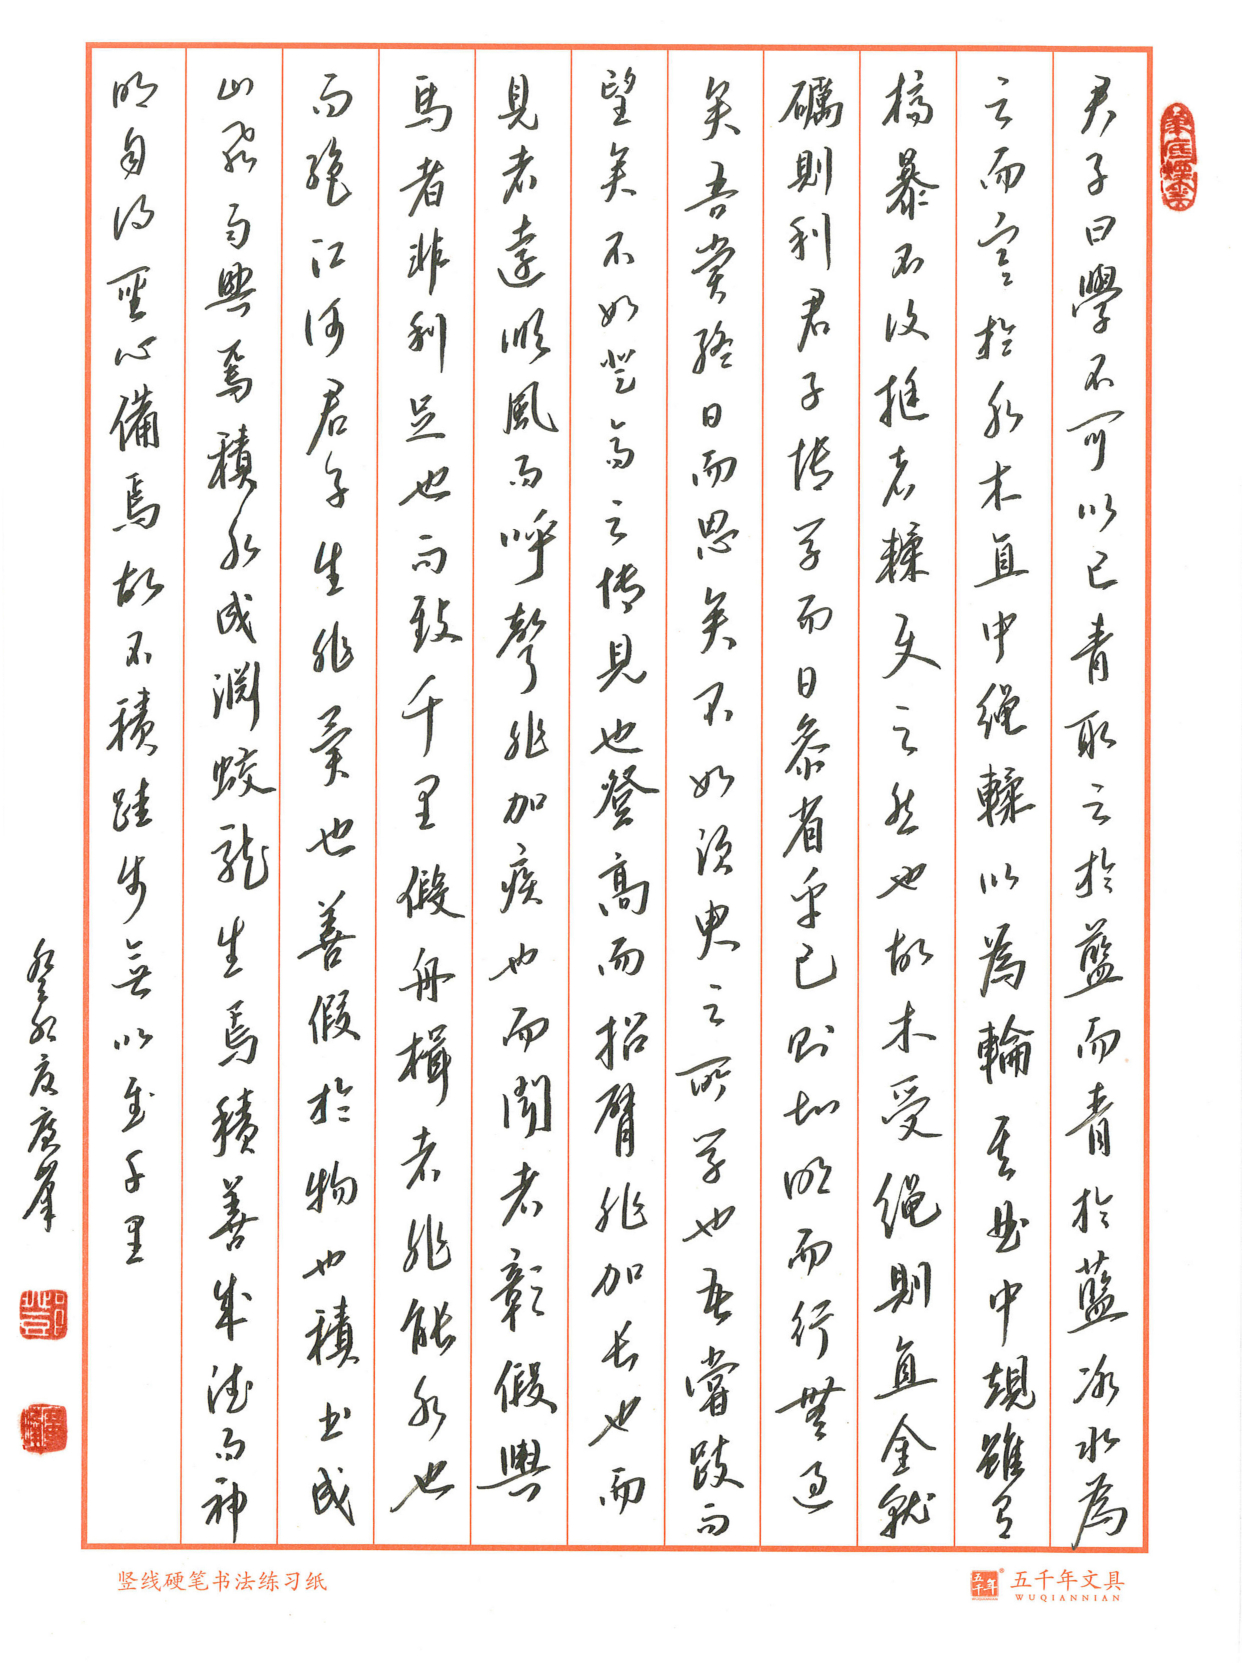 君子曰學不可以已青取之於藍而青於藍冰水為
之而寒於水木直中绳輮以為輪其曲中規雖有
槁暴不復挺者輮使之然也故木受绳則直金就
礪則利君子博学而日參省乎已則知明而行無過
矣吾嘗終日而思矣不如須臾之所学也吾嘗跂而
望矣不如登高之博見也登高而招臂非加长也而
見者遠順風而呼聲非加疾也而聞者彰假輿
馬者非利足也而致千里假舟楫者非能水也
而絶江河君子生非異也善假於物也積土成
山風雨興焉積水成淵蛟龍生焉積善成德而神
明自得聖心備焉故不積跬步無以至千里
筆底煙雲
竖线硬笔书法练习纸
五千年
五千年文具
WUQIANNIAN